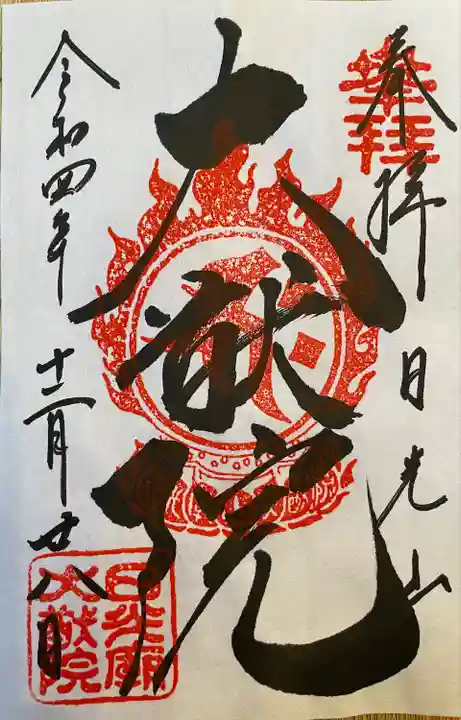 奉拝 日光山
奉拝
大猷院
令和四年 十二月廿八日
日光廟
大猷院